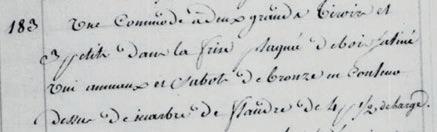 183 Une Commode à deux grands tiroirs et
3 petits dans la frise plaqué de bois satiné
uni anneaux et sabots de bronze en couleur
dessus de marbre de flandre de 4 p. 1/2 de large.